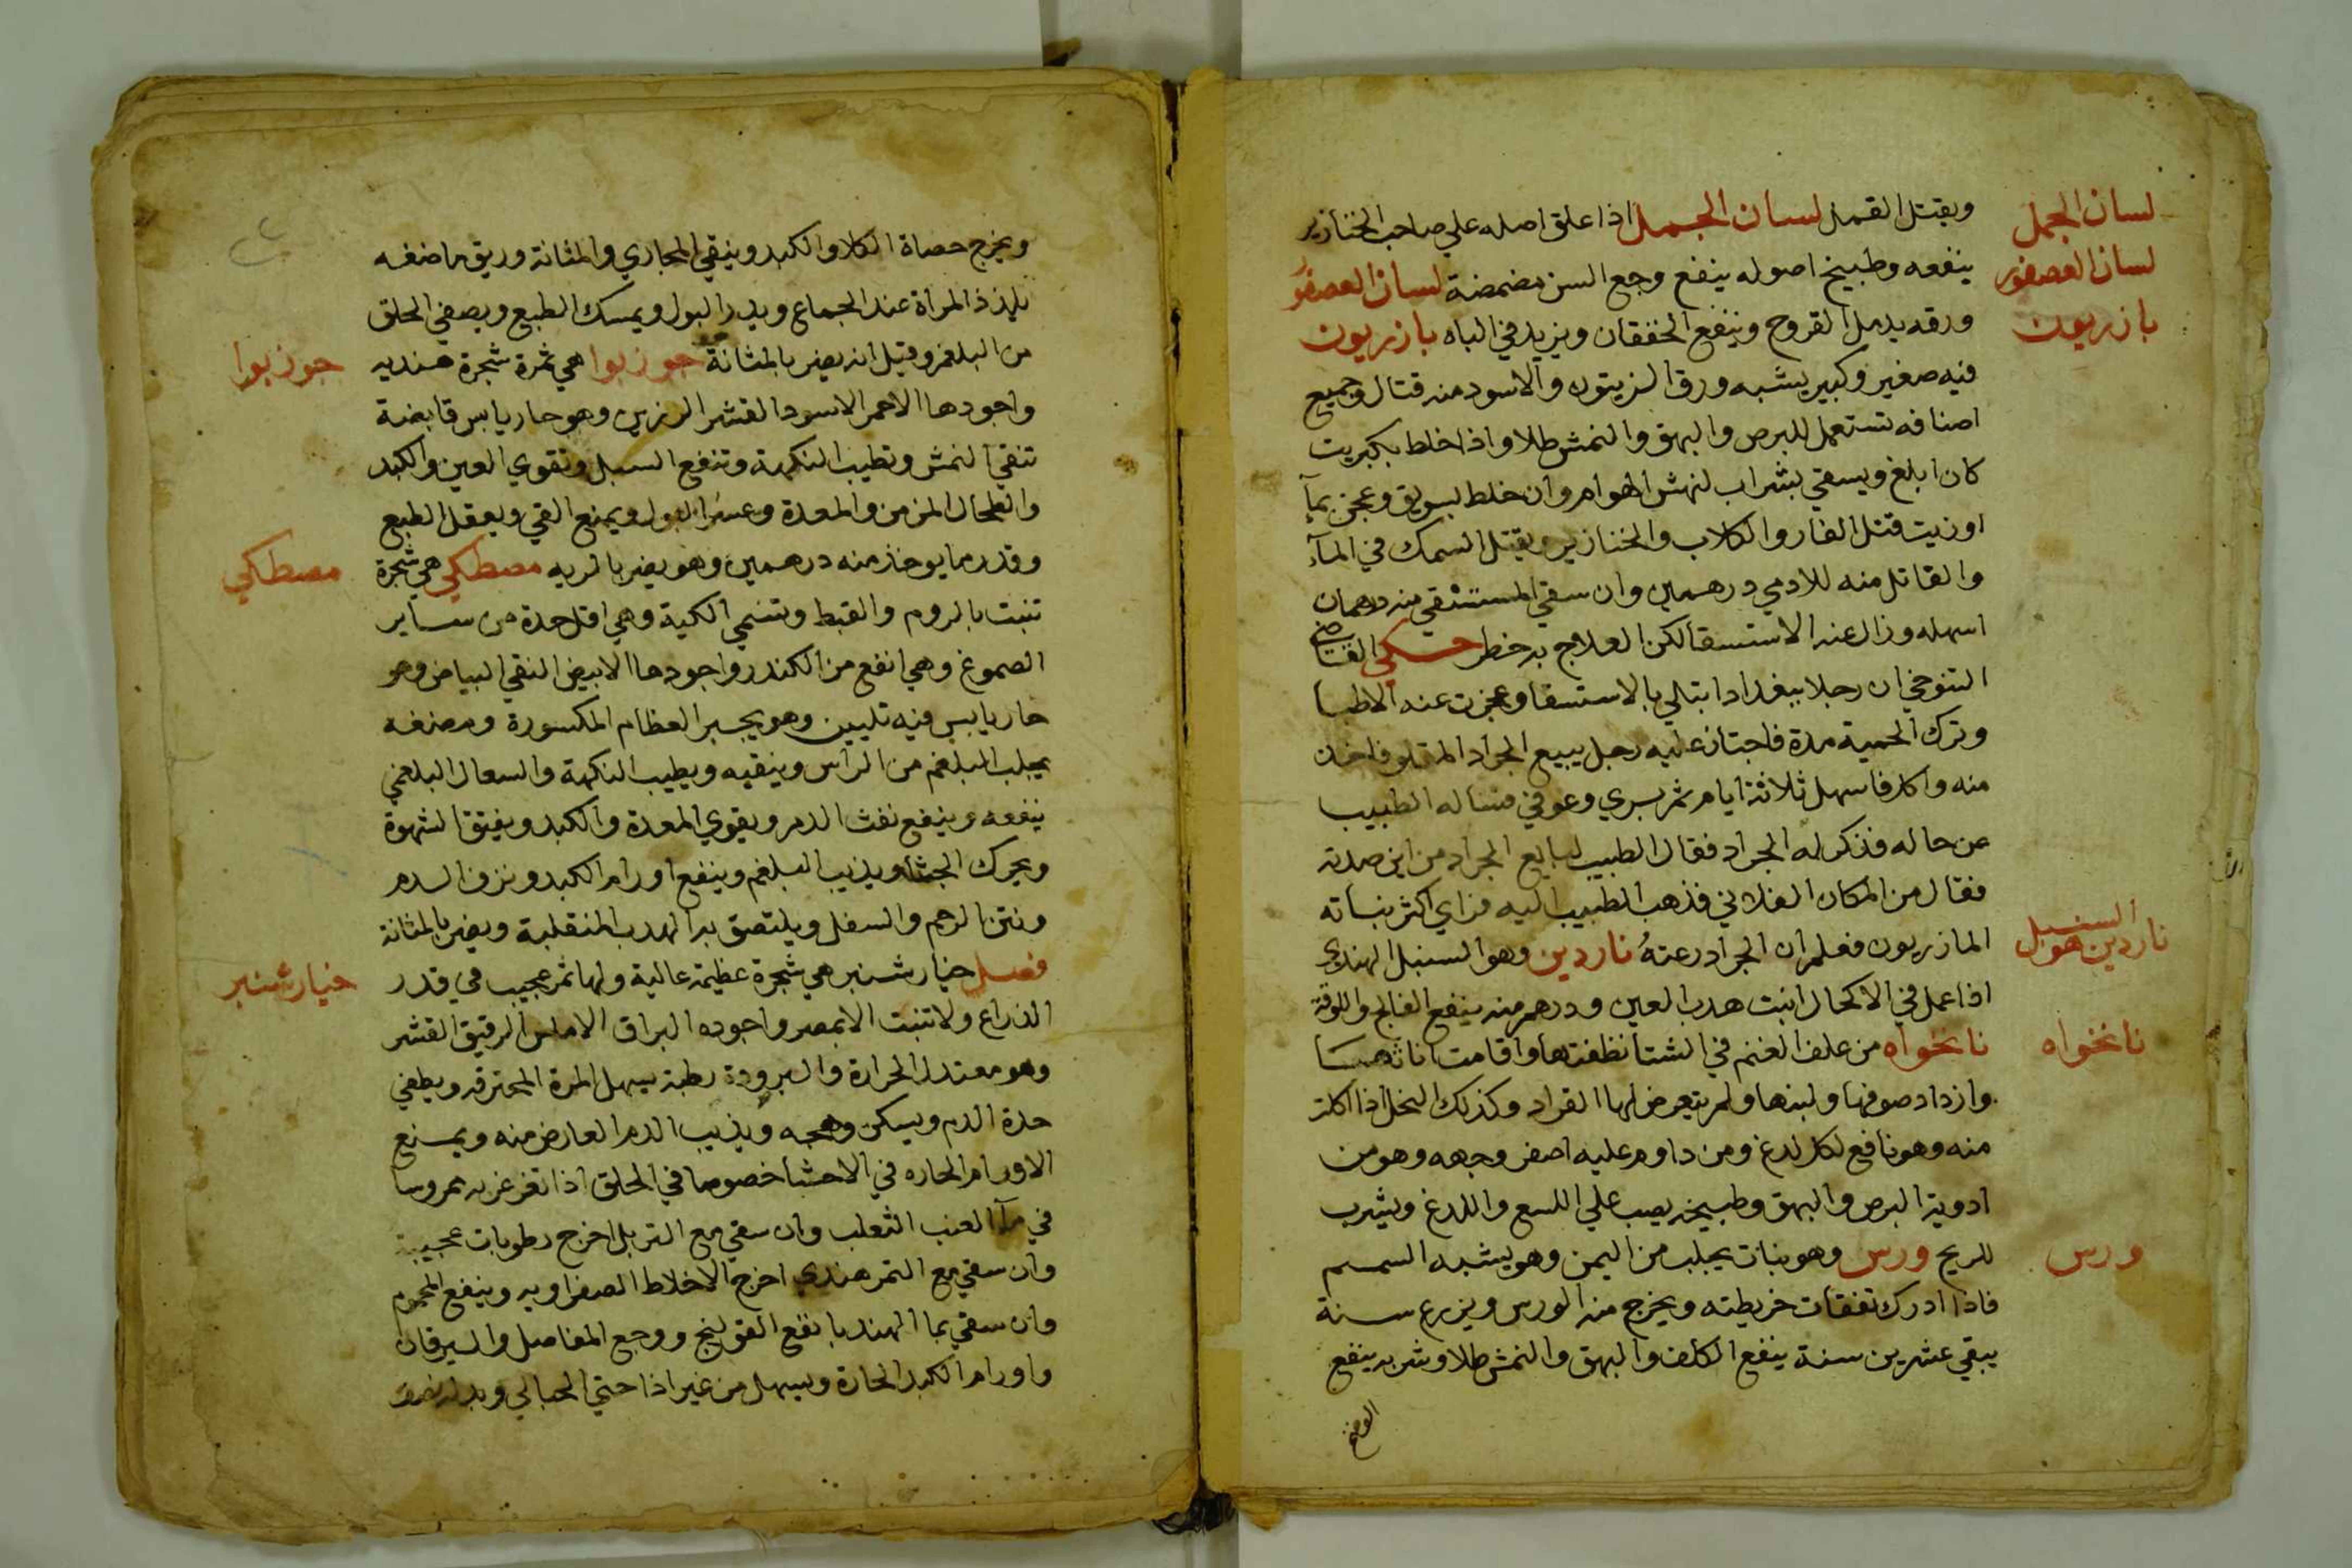 ويقتل القمل لسان الجمل اذا علق اصله علي صاحب الخنازير
لسان الجمل
ينفعه وطبيخ اصوله ينفع وجع السن مضمضة لسان العصفور
لسان العصفور
ورقه يدمل القروح وينفع الخفقان ويزيد في الباه بازريون
بازريون
فيه صغير وكبير يشبه ورق الزيتون والاسود منه قتال وجميع
اصنافه تستعمل للبرص والبهق والنمش طلا واذا خلط بكبريت
كان ابلغ ويسقي بشراب لنهش الهوام وان خلط بسويق وعجن بمآ
اوزيت قتل الفار والكلاب والخنازير ويقتل السمك في المآء
والقاتل منه للادمي درهمين وان سقي المستسقي منه درهمان
اسهله وزال عنه الاستسقا لكن العلاج به خطر حكي القاضي
التنوخي ان رجلا ببغداد ابتلي بالاستسقا وعجزت عنه الاطبا
وترك الحمية مدة فاجتاز عليه رجل يبيع الجراد المقلو فاخذ
منه واكل فاسهل ثلاثة ايام ثم بري وعوفي فساله الطبيب
عن حاله فذكر له الجراد فقال الطبيب لبايع الجراد من اين صدته
فقال من المكان الفلاني فذهب الطبيب اليه فراي اكثر نباته
المازريون فعلم ان الجراد رعته ناردين وهو السنبل الهندي
ناردين هو السنبل
اذا عمل في الاكحال انبت هدب العين ودرهم منه ينفع الفالج واللوقة
نانخواه من علف الغنم في الشتا نظفتها واقامت اناثها
نانخواه
وازداد صوفها ولبنها ولم يتعرض لها القراد وكذلك النخل اذا اكلت
منه وهو نافع لكل لدغ ومن داوم عليه اصفر وجهه وهو من
ادوية البرص والبهق وطبيخه يصب علي اللسع واللدغ ويشرب
للريح ورس وهو نبات يجلب من اليمن وهو يشبه السمسم
ورس
فاذا ادرك تفقات خريطته ويخرج منه الورس ويزرع سنة
يبقي عشرين سنة ينفع الكلف والبهق والنمش طلا وشربه ينفع
ويخرج حصاة الكلا والكبد وينقي المجاري والمثانة وريق ماضغه
يلذذ المراة عند الجماع ويدر البول ويمسك الطبع ويصفي الحلق
من البلغم وقيل انه يضر بالمثانة جوزبوا هي ثمرة شجرة هنديه
جوزبوا
واجودها الاحمر الاسود القشر الرزين وهو حار يابس قابضة
تنقي النمش وتطيب النكهة وتنفع السبل وتقوي العين والكبد
والطحال المزمن والمعدة وعسر البول ويمنع القي ويعقل الطبع
وقدر ما يوخذ منه درهمين وهو يضر بالريه مصطكي هي شجرة
مصطكي
تنبت بالروم والقبط وتسمي الكية وهي اقل حدة من ساير
الصموغ وهي انفع من الكندر واجودها الابيض النقي البياض وهو
حار يابس فيه تليين وهو يجبر العظام المكسورة ومضغه
يجلب البلغم من الراس وينقيه ويطيب النكهة والسعال البلغمي
ينفعه وينفع نفث الدم ويقوي المعدة والكبد ويفتق الشهوة
ويحرك الجشا ويذيب البلغم وينفع اورام الكبد ونزف الدم
ونتن الرحم والسفل ويلتصق به الهدب المنقلبة ويضر بالمثانة
فصل خيار شنبر هي شجرة عظيمة عالية ولها ثمر عجيب في قدر
خيار شنبر
الذراع ولا تنبت الا بمصر واجوده البراق الاملس الرقيق القشر
وهو معتدل الحرارة والبرودة رطبة يسهل المرة المحترقه ويطفي
حدة الدم ويسكن وهجه ويذيب الدم العارض منه ويمنع
الاورام الحاره في الاحشا خصوصا في الحلق اذا تغرغر به ممروسا
في مآ العنب الثعلب وان سقي مع التربل اخرج رطوبات عجيبة
وان سقي مع التمر هندي اخرج الاخلاط الصفراويه وينفع المحموم
وان سقي بما الهندبا نفع القولنج ووجع المفاصل واليرقان
واورام الكبد الحارة ويسهل من غير اذا حتي الحبالي وبدله نصف